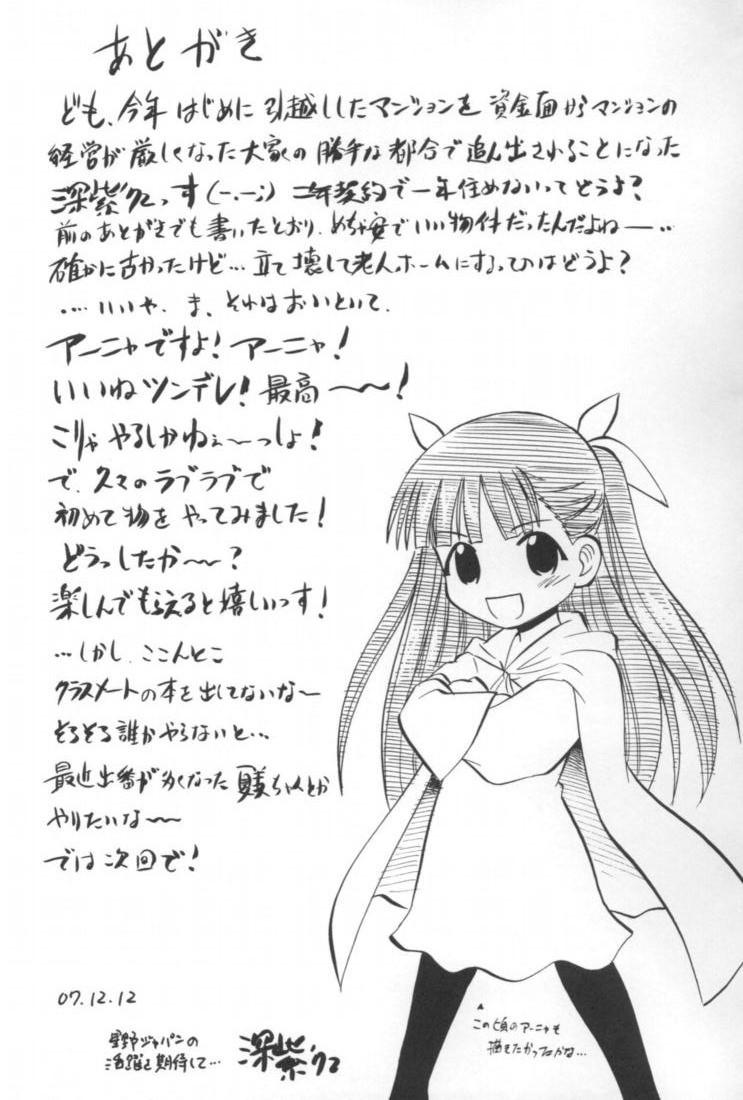 あとがき
ども、今年はじめに引越ししたマンションを資金面からマンションの
経営が厳しくなった大家の勝手な都合で追ん出されることになった
深紫クロっす(-.-;) 二年契約で一年住めないってどうよ?
前のあとがきでも書いたとおり、めちゃ安でいい物件だったんだよねー…
確かに古かったけど…立て壊して老人ホームにするってのはどうよ?
‥‥いいや、ま、それはおいといて、
アーニャですよ!アーニャ!
いいねツンデレ!最高〜〜!
こりゃやるしかねぇ〜っしょ!
で、久々のラブラブで
初めて物をやってみました!
どうっしたか〜〜?
楽しんでもらえると嬉しいっす!
…しかし、ここんとこ
クラスメートの本を出してないな〜
そろそろ誰かやらないと…
最近出番が多くなった ちゃんとか
やりたいな〜〜
では次回で!
07.12.12
星野ジャパンの
活躍を期待して…
深紫クロ
この頃のアーニャも
描きたかったかな…